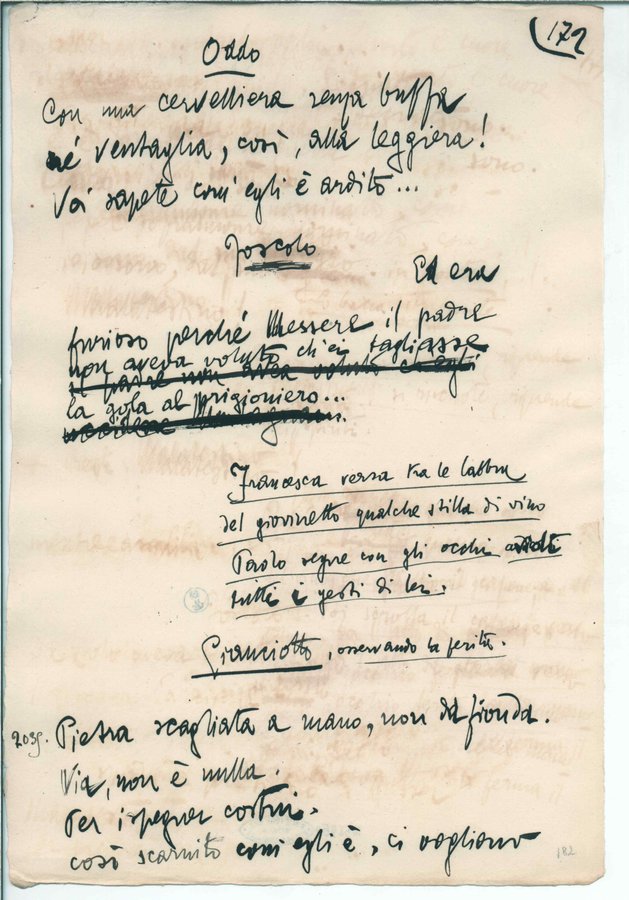 172
Oddo
Con una cervelliera senza buffa
né ventaglia, così, alla leggiera!
Voi sapete com'egli è ardito...
Foscolo
Ed era
furioso perché Messere il padre
non aveva voluto ch'ei tagliasse
il padre non avea voluto ch'egli
la gola al prigioniero...
uccidere
Francesca versa tra le labbra
del giovinetto qualche stilla di vino
Paolo segue con gli occhi
tutti i gesti di lei.
Gianciotto, osservando la ferita.
2035. Pietra scagliata a mano, non da fionda.
Via, non è nulla.
Per ispegner costui.
così scarnito com'egli è, ci vogliono
182